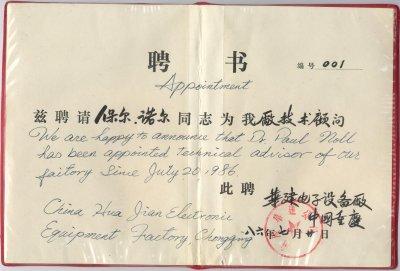 聘书
编号 001
Appointment
兹聘请保尔.诺尔同志为我厰技术顾问
We are happy to announce that Dr Paul Noll
has been appointed technical advisor of our
factory Since July 20 1986.
此聘
华建电子设备厰
中国重庆
China Hua Jian Electronic
Equipment Factory Chongqing
八六年七月廿日